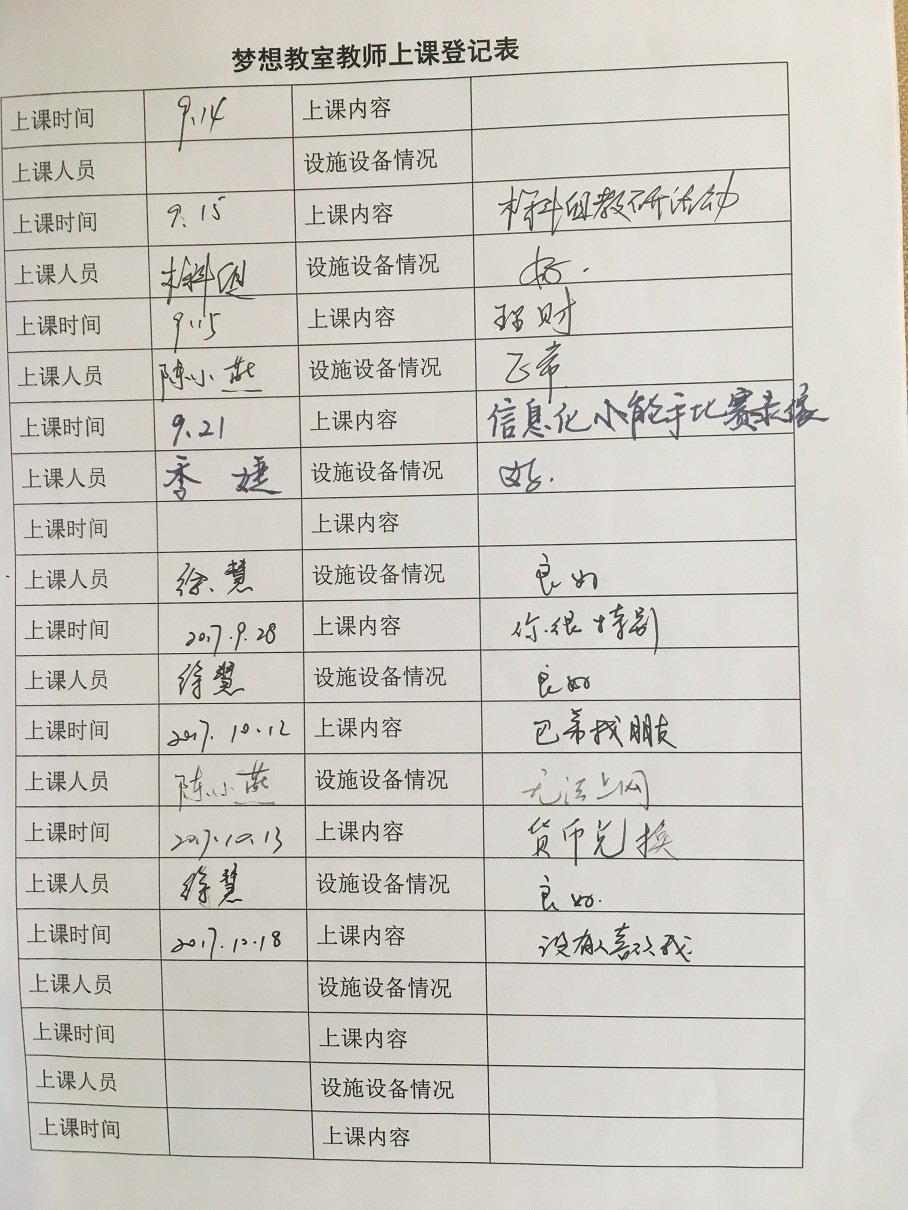 梦想教室教师上课登记表
上课时间 9.14 上课内容
上课人员 设施设备情况
上课时间 9.15 上课内容 科组教研活动
上课人员 科组 设施设备情况 好.
上课时间 9.15 上课内容 理财
上课人员 陈小燕 设施设备情况 正常
上课时间 9.21 上课内容 信息化小能手比赛录像
上课人员 季婕 设施设备情况 好.
上课时间 上课内容
上课人员 徐慧 设施设备情况 良好
上课时间 2017.9.28 上课内容 你很特别
上课人员 徐慧 设施设备情况 良好
上课时间 2017.10.12 上课内容 巴蒂找朋友
上课人员 陈小燕 设施设备情况 无法上网
上课时间 2017.10.13 上课内容 货币兑换
上课人员 徐慧 设施设备情况 良好.
上课时间 2017.10.18 上课内容 没有人喜欢我
上课人员 设施设备情况
上课时间 上课内容
上课人员 设施设备情况
上课时间 上课内容